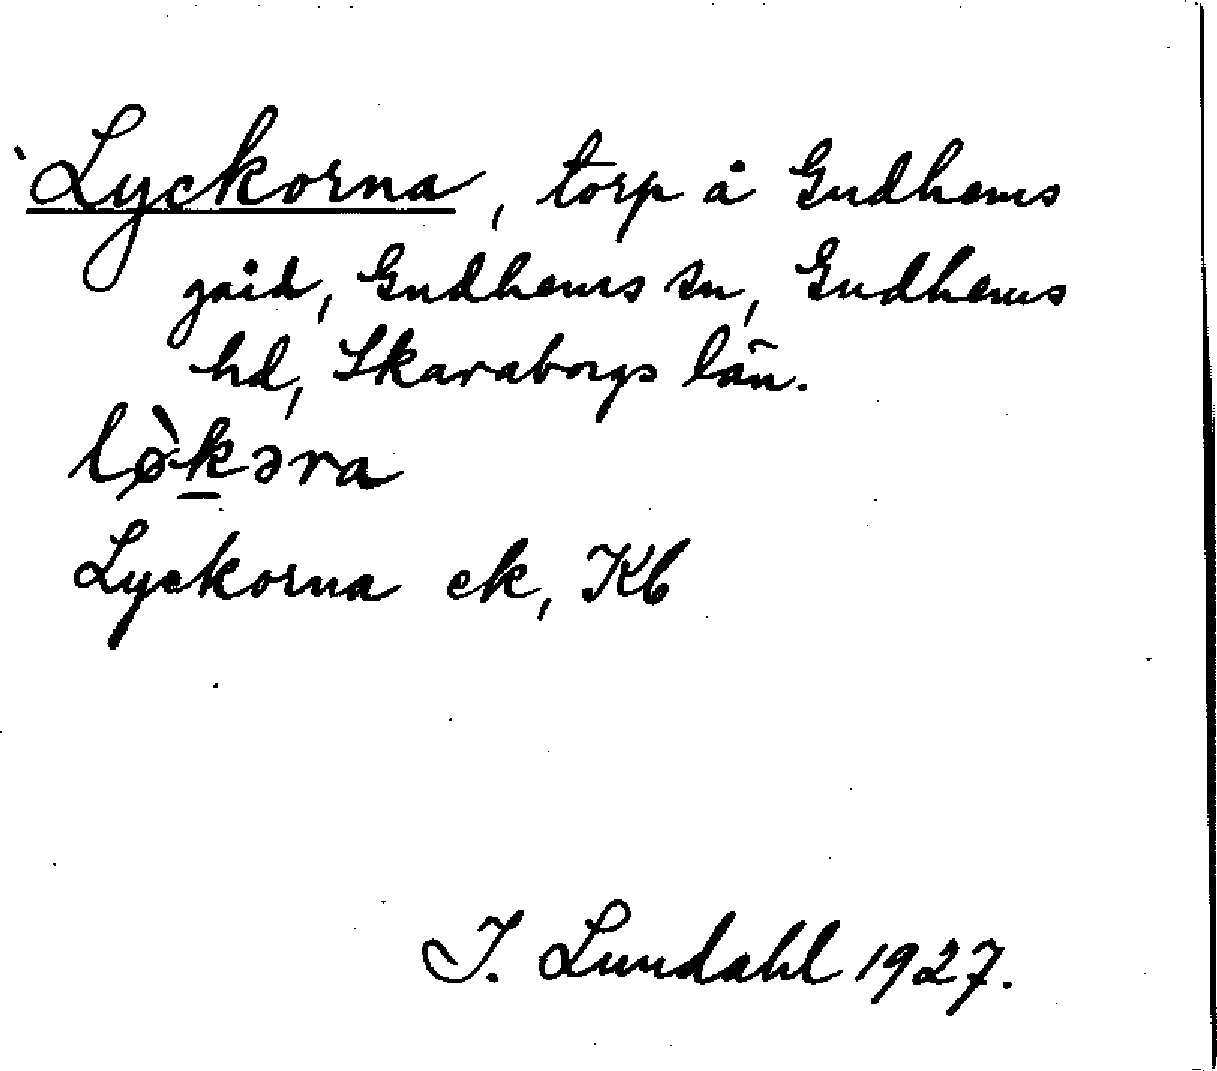 Lyckorna, torp å Gudhems
gård, Gudhems sn, Gudhems
hd, Skaraborgs län.
lø̀kəra
Lyckorna ek, Kb
I. Lundahl 1927.